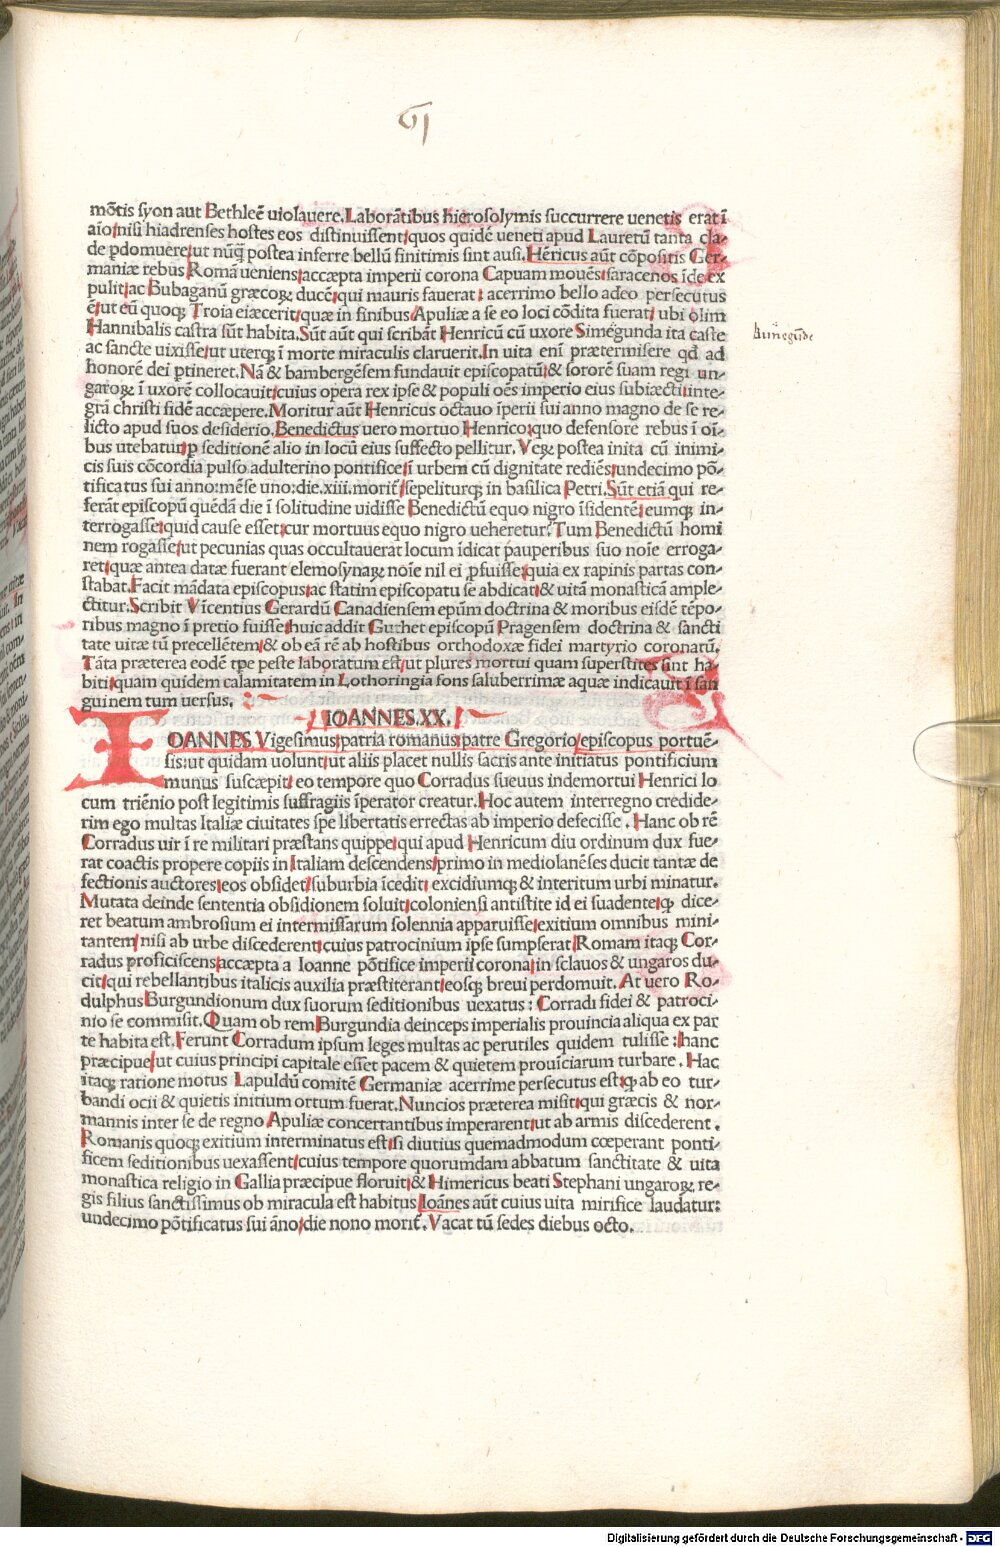 mōtis syon aut Bethleē uiolauere. Laborātibus hierosolymis succurrere uenetis erat ī
aīo/nisi hiadrenses hostes eos distinuissent/quos quidē ueneti apud Lauretū tanta cla-
de ꝑdomuere/ut nūq̄ postea inferre bellū finitimis sint ausi. Hēricus aūt cōpositis Ger-
maniæ rebus Romā ueniens/accæpta imperii corona Capuam mouēs/saracenos īde ex
pulit/ac Bubaganū græcoꝝ ducē/qui mauris fauerat: acerrimo bello adeo persecutus
ē/ut eū quoqꝫ Troia eiæcerit/quæ in finibus Apuliæ a se eo loci cōdita fuerat/ ubi olim
Hannibalis castra sūt habita. Sūt aūt qui scribāt Henricū cū uxore Simegunda ita caste
ac sancte uixisse/ut uterqꝫ ī morte miraculis claruerit. In uita enī prætermisere qd ad
honorē dei ꝑtineret. Nā & bambergēsem fundauit episcopatū/& sororē suam regi un-
garoꝝ ī uxorē collocauit/cuius opera rex ipse & populi oēs imperio eius subiæcti/inte-
grā christi fidē accæpere. Moritur aūt Henricus octauo īperii sui anno magno de se re-
licto apud suos desiderio. Benedictus uero mortuo Henrico/quo defensore rebus ī oī-
bus utebatur/ꝑ seditionē alio in locū eius suffecto pellitur. Veꝝ postea inita cū inimi-
cis suis cōcordia pulso adulterino pontifice/ī urbem cū dignitate rediēs/undecimo pō-
tificatus sui anno: mēse uno: die. xiii. morit̄/sepeliturqꝫ in basilica Petri. Sūt etiā qui re-
ferāt episcopū quēdā die ī solitudine uidisse Benedictū equo nigro īsidentē/eumqꝫ in-
terrogasse/quid cause esset/cur mortuus equo nigro ueheretur? Tum Benedictū homi
nem rogasse/ut pecunias quas occultauerat locum īdicat pauperibus suo noīe erroga-
ret/quæ antea datæ fuerant elemosynaꝝ noīe nil ei ꝓfuisse/quia ex rapinis partas con-
stabat. Facit mādata episcopus/ac statim episcopatu se abdicat/& uitā monasticā ample-
ctitur. Scribit Vīcentius Gerardū Canadiensem epūm doctrina & moribus eisdē tēpo-
ribus magno ī pretio fuisse/huic addit Guthet episcopū Pragensem doctrina & sancti
tate uitæ tū precellētem/& ob eā rē ab hostibus orthodoxæ fidei martyrio coronatū.
Tāta præterea eodē tꝑe peste laboratum est/ut plures mortui quam superstites sint ha-
biti/quam quidem calamitatem in Lothoringia fons saluberrimæ aquæ indicauit ī san
guinem tum uersus.
Kunegūde
IOANNES. XX.
IOANNES Vigesimus/patria romanus/patre Gregorio/episcopus portuē-
sis: ut quidam uolunt/ut aliis placet nullis sacris ante initiatus pontificium
munus suscæpit/ eo tempore quo Corradus sueuus indemortui Henrici lo
cum triēnio post legitimis suffragiis īperator creatur. Hoc autem interregno crēdide-
rim ego multas Italiæ ciuitates spe libertatis errectas ab imperio defecisse. Hanc ob rē
Corradus uir ī re militari præstans quippe/qui apud Henricum diu ordinum dux fue-
rat coactis propere copiis in Italiam descendens/primo in mediolanēses ducit tantæ de
fectionis auctores/eos obsidet/suburbia īcedit/ excidiumqꝫ & interitum urbi minatur.
Mutata deinde sententia obsidionem soluit/coloniensi antistite id ei suadente/ꝙ dice-
ret beatum ambrosium ei intermissarum solennia apparuisse/exitium omnibus mini-
tantem/nisi ab urbe discederent/cuius patrocinium ipse sumpserat/Romam itaqꝫ Cor-
radus proficiscens/accæpta a Ioanne pōtifice imperii corona/in sclauos & ungaros du-
cit/qui rebellantibus italicis auxilia præstiterant/eosqꝫ breui perdomuit. At uero Ro-
dulphus Burgundionum dux suorum seditionibus uexatus: Corradi fidei & patroci-
nio se commisit. Quam ob rem Burgundia deinceps imperialis prouincia aliqua ex par
te habita est. Ferunt Corradum ipsum leges multas ac perutiles quidem tulisse: hanc
præcipue/ut cuius principi capitale esset pacem & quietem prouīciarum turbare. Hac
itaqꝫ ratione motus Lapuldū comitē Germaniæ acerrime persecutus est/ꝙ ab eo tur-
bandi ocii & quietis initium ortum fuerat. Nuncios præterea misit/qui græcis & nor-
mannis inter se de regno Apuliæ concertantibus imperarent/ut ab armis discederent.
Romanis quoqꝫ exitium interminatus est/si diutius quemadmodum cœperant ponti-
ficem seditionibus uexassent/cuius tempore quorumdam abbatum sanctitate & uita
monastica religio in Gallia præcipue floruit/& Himericus beati Stephani ungaroꝝ re-
gis filius sanctissimus ob miracula est habitus Ioānes aūt cuius uita mirifice laudatur:
undecimo pōtificatus sui āno/die nono morit̄. Vacat tū sedes diebus octo.
Digitalisierung gefördert durch die Deutsche Forschungsgemeinschaft - DFG